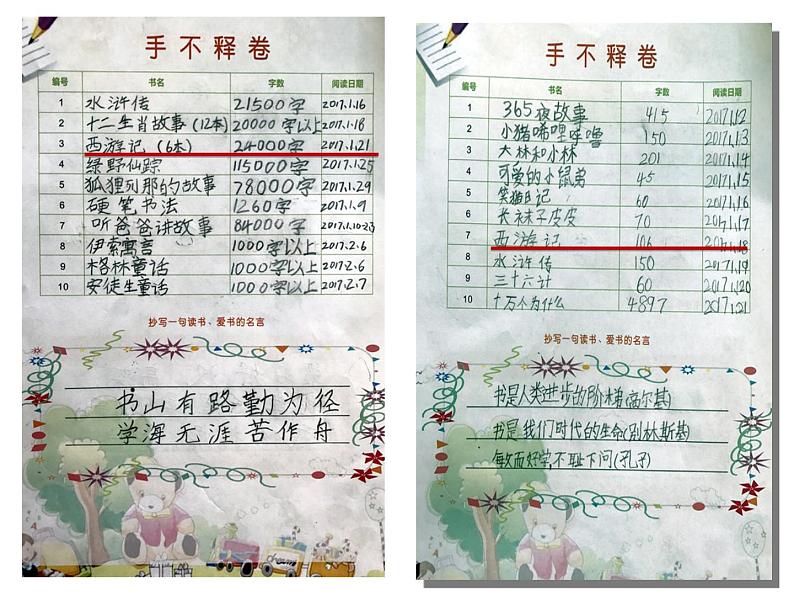 手不释卷
编号 书名 字数 阅读日期
1 水浒传 21500字 2017.1.16
2 十二生肖故事(12本) 20000字以上 2017.1.18
3 西游记(6本) 24000字 2017.1.21
4 绿野仙踪 115000字 2017.1.25
5 狐狸列那的故事 78000字 2017.1.29
6 硬笔书法 1260字 2017.1.9
7 听爸爸讲故事 84000字 2017.1.10-23
8 伊索寓言 1000字以上 2017.2.6
9 格林童话 1000字以上 2017.2.6
10 安徒生童话 1000字以上 2017.2.7
抄写一句读书、爱书的名言
书山有路勤为径
学海无涯苦作舟
手不释卷
编号 书名 字数 阅读日期
1 365夜故事 415 2017.1.12
2 小猪唏哩呼噜 150 2017.1.13
3 大林和小林 201 2017.1.14
4 可爱的小鼠弟 45 2017.1.15
5 笑猫日记 60 2017.1.16
6 长袜子皮皮 70 2017.1.17
7 西游记 106 2017.1.18
8 水浒传 150 2017.1.19
9 三十六计 60 2017.1.20
10 十万个为什么 4897 2017.1.21
抄写一句读书、爱书的名言
书是人类进步的阶梯(高尔基)
书是我们时代的生命(别林斯基)
敏而好学,不耻下问(孔子)